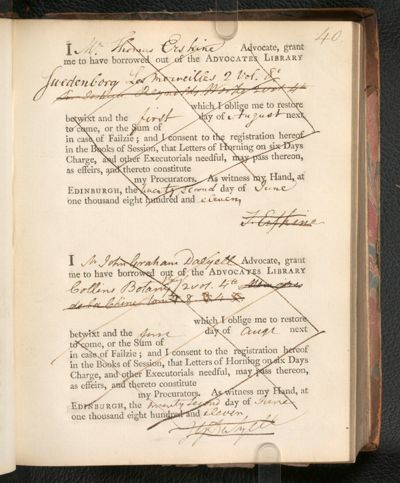 40
I Mr Thomas Erskine Advocate, grant
me to have borrowed out of the ADVOCATES LIBRARY
Swedenborg Les Merveilles 2 Vol. 8o
Sir Joshua Reynolds Works 2 vol 4to
which I oblige me to restore
betwixt and the first day of August next
to come, or the Sum of
in case of Failzie; and I consent to the registration hereof
in the Books of Session, that Letters of Horning on six Days
Charge, and other Executorials needful, may pass thereon,
as effeirs, and thereto constitute
my Procurators. As witness my Hand, at
EDINBURGH, the twenty second day of June
one thousand eight hundred and eleven,
T. Erskine
I Mr John Graham Dalyell Advocate, grant
me to have borrowed out of the ADVOCATES LIBRARY
Collins Botany 2 vol. 4to
de la Chine
which I oblige me to restore
betwixt and the day of Augt next
to come, or the Sum of
in case of Failzie; and I consent to the registration hereof
in the Books of Session, that Letters of Horning on six Days
Charge, and other Executorials needful, may pass thereon,
as effeirs, and thereto constitute
my Procurators. As witness my Hand, at
EDINBURGH, the twenty second day of June
one thousand eight hundred and eleven,
Dalyell